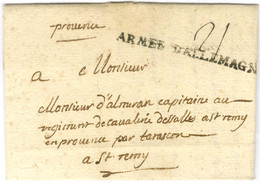 provence
ARMEE D'ALLEMAGN
21
a Monsieur
Monsieur d'almeran capitaine au
regiment de cavalerie desalles a st remy
en provence par tarascon
a st remy